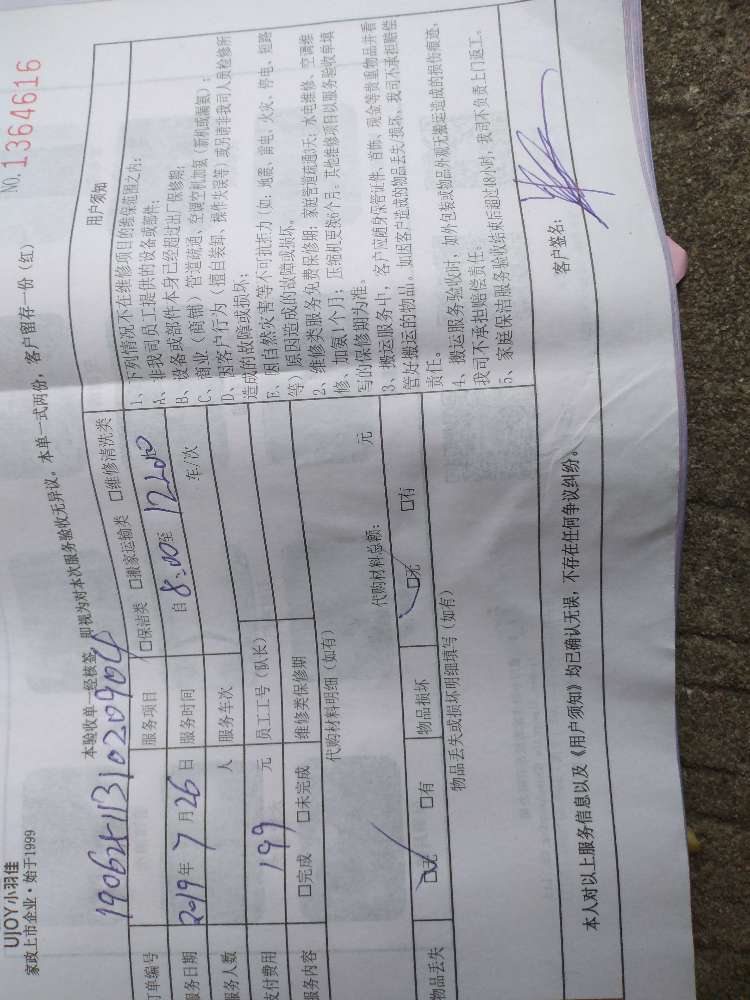 UJOY小羽佳
家政上市企业·始于1999
NO. 1364616
本验收单一经核签，即视为对本次服务验收无异议，本单一式两份，客户留存一份（红）
订单编号 服务项目 □保洁类 □搬家运输类 □维修清洗类
服务日期 2019年7月26日 服务时间 自8:00至12:00
服务人数 人 服务车次 车/次
支付费用 199 元 员工工号（队长）
服务内容 □完成 □未完成 维修类保修期
代购材料明细（如有） 代购材料总额： 元
物品丢失 □无 □有 物品损坏 □无 □有
物品丢失或损坏明细填写（如有）
用户须知
1、下列情况不在维修项目的维保范围之内：
A、非我司员工提供的设备或部件；
B、设备或部件本身已经超过出厂保修期；
C、商业（商铺）管道疏通、空调空机加氨（新机或漏氨）；
D、因客户行为（擅自装卸、操作失误等）或另请非我司人员检修所
造成的故障或损坏；
E、因自然灾害等不可抵抗力（如：地震、雷电、火灾、停电、短路
等）原因造成的故障或损坏。
2、维修类服务免费保修期：家庭管道疏通3天；水电维修、空调维
修、加氨1个月；压缩机更换6个月。其他维修项目以服务验收单填
写的保修期为准。
3、搬运服务中，客户应随身保管证件、首饰、现金等贵重物品并看
管好搬运的物品，如因客户造成的物品丢失/损坏，我司不承担赔偿
责任。
4、搬运服务验收时，如外包装或物品外观无搬运造成的损伤痕迹，
我司不承担赔偿责任。
5、家庭保洁服务验收结束后超过48小时，我司不负责上门返工。
本人对以上服务信息以及《用户须知》均已确认无误，不存在任何争议纠纷。
客户签名：